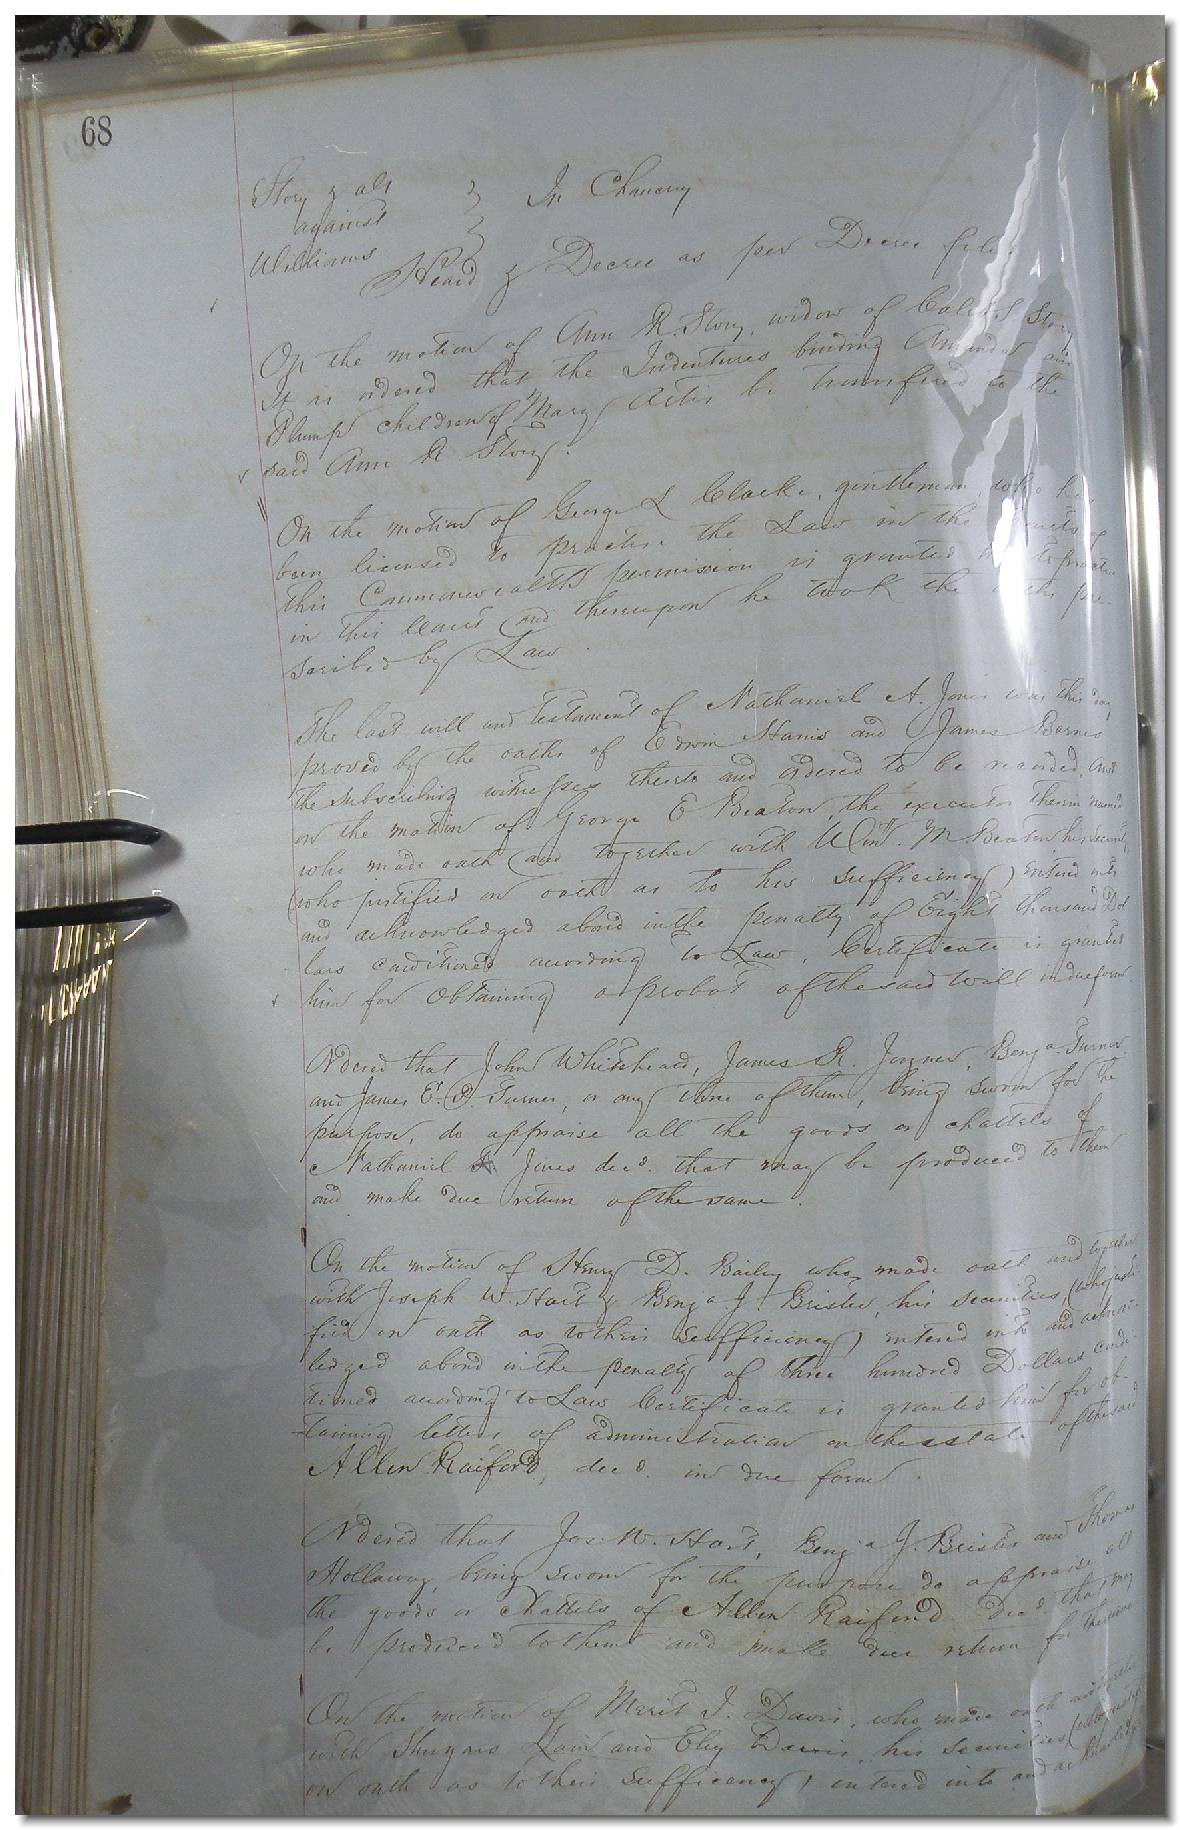 68
Story & als } In Chancery
against }
Williams }
Heard & Decree as per Decree filed
On the motion of Ann R. Story, widow of Story
It is ordered that the Indentures binding and
Plump children of Mary Artis be transfered to the
said Ann R Story.
On the motion of George L Clarke, gentleman, who has
been licensed to practise the Law in the Courts of
this Commonwealth permission is granted to practise
in this Court and thereupon he took the oaths pre
scribed by Law.
The last will and testament of Nathaniel A. Jones was this day
proved by the oaths of Edwin Harris and James Barnes
the subscribing witnesses thereto and ordered to be recorded. And
on the motion of George E Beaton, the executor therein named
who made oath (and together with Wm. M Beaton his security,
(who justified on oath as to his sufficiency) entered into
and acknowledged abond inthe penalty of Eight thousand Dol
lars conditioned according to Law, Certificate is granted
him for obtaining a probat of the said Will in due form
Ordered that John Whitehead, James R. Joyner, Benja. Turner
and James E. P Turner, or any three of them, being sworn for the
purpose, do appraise all the goods or chattels of
Nathaniel A. Jones decd. that may be produced to them
and make due return of the same.
On the motion of Henry D. Bailey who made oath and together
with Joseph W. Hart & Benja. J. Brister, his securities, (who justi
fied on oath as to their sufficiency) entered into and acknow
ledged abond in the penalty of three hundred Dollars condi
tioned according to Law Certificate is granted him for ob-
-taining letters of administration on the estate of the said
Allen Raiford, decd. in due form.
Ordered that Jos. W. Hart, Benja J. Brister and Thomas
Holloway, being sworn for the purpose do appraise all
the goods or chattels of Allen Raiford decd. that may
be produced to them and make due return for the same
On the motion of Merit J. Davis, who made oath and together
with and Davis, his securities (who justified
on oath as to their sufficiency) entered into and acknowledged